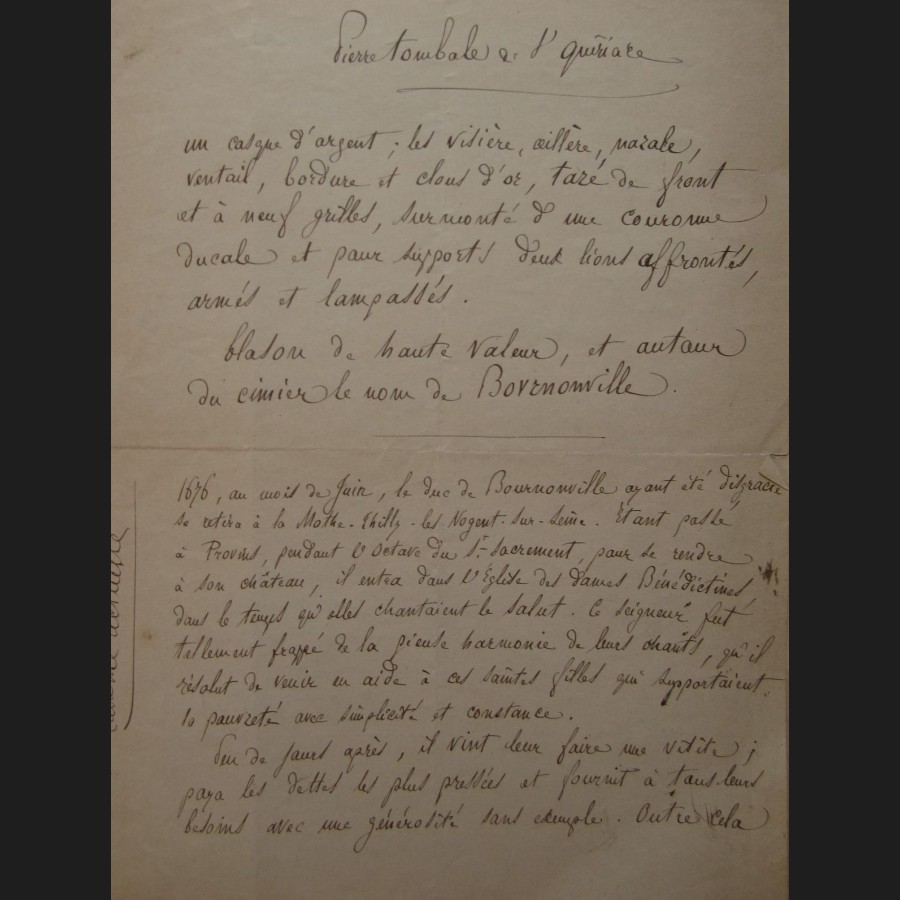 Pierre tombale de St Quiriace
un casque d'argent ; les visière, œillère, nazale,
ventail, bordure et clous d'or, taré de front
et à neuf grilles, surmonté d'une couronne
ducale et pour supports deux lions affrontés,
armés et lampassés.
blason de haute valeur, et autour
du cimier le nom de Bovrnonville.
1676, au mois de Juin, le duc de Bournonville ayant été disgracié
se retira à la Mothe-Thilly-les Nogent-sur-Seine. Etant passé
à Provins, pendant l'Octave du St-Sacrement, pour se rendre
à son château, il entra dans l'Eglise des dames Bénédictines
dans le temps qu'elles chantaient le salut. Ce seigneur fut
tellement frappé de la pieuse harmonie de leurs chants, qu'il
résolut de venir en aide à ces saintes filles qui supportaient
la pauvreté avec simplicité et constance.
Peu de jours après, il vint leur faire une visite ;
paya les dettes les plus pressées et fournit à tous leurs
besoins avec une générosité sans exemple. Outre cela